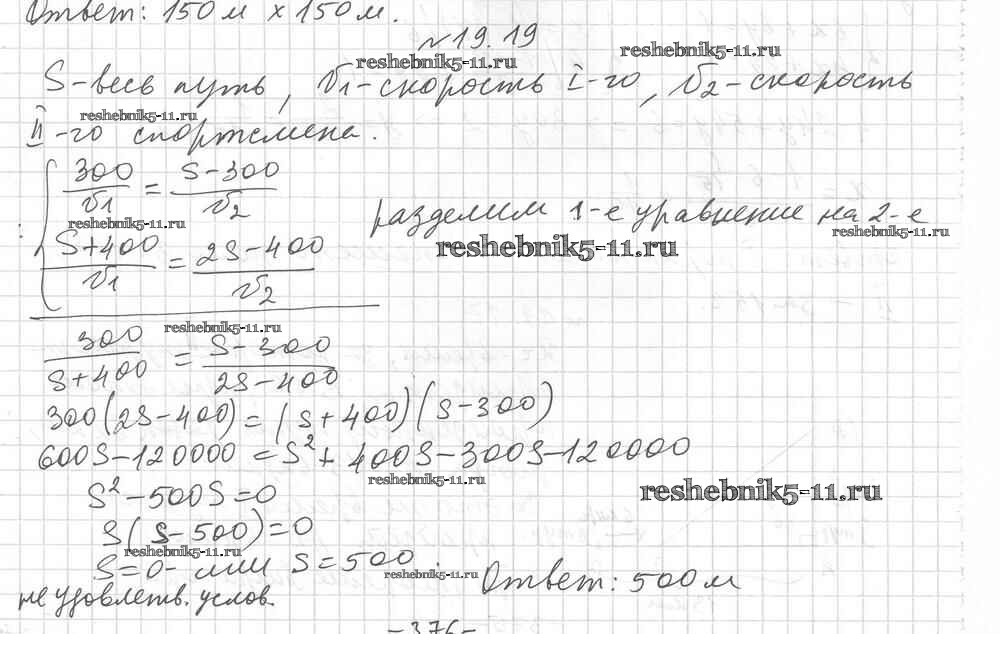 Ответ: 150 м x 150 м.
№19.19
reshebnik5-11.ru reshebnik5-11.ru
S-весь путь, V1-скорость I-го, V2-скорость
reshebnik5-11.ru
II-го спортсмена.
300/V1 = (S-300)/V2
reshebnik5-11.ru
разделим 1-е уравнение на 2-е
reshebnik5-11.ru reshebnik5-11.ru
: (S+400)/V1 = (2S-400)/V2
reshebnik5-11.ru
300/(S+400) = (S-300)/(2S-400)
300(2S-400)=(S+400)(S-300)
600S-120000=S²+400S-300S-120000
reshebnik5-11.ru
S²-500S=0
reshebnik5-11.ru
S(S-500)=0
reshebnik5-11.ru
S=0- или S=500.
reshebnik5-11.ru
Ответ: 500м
не удовлетв. услов.
-376-